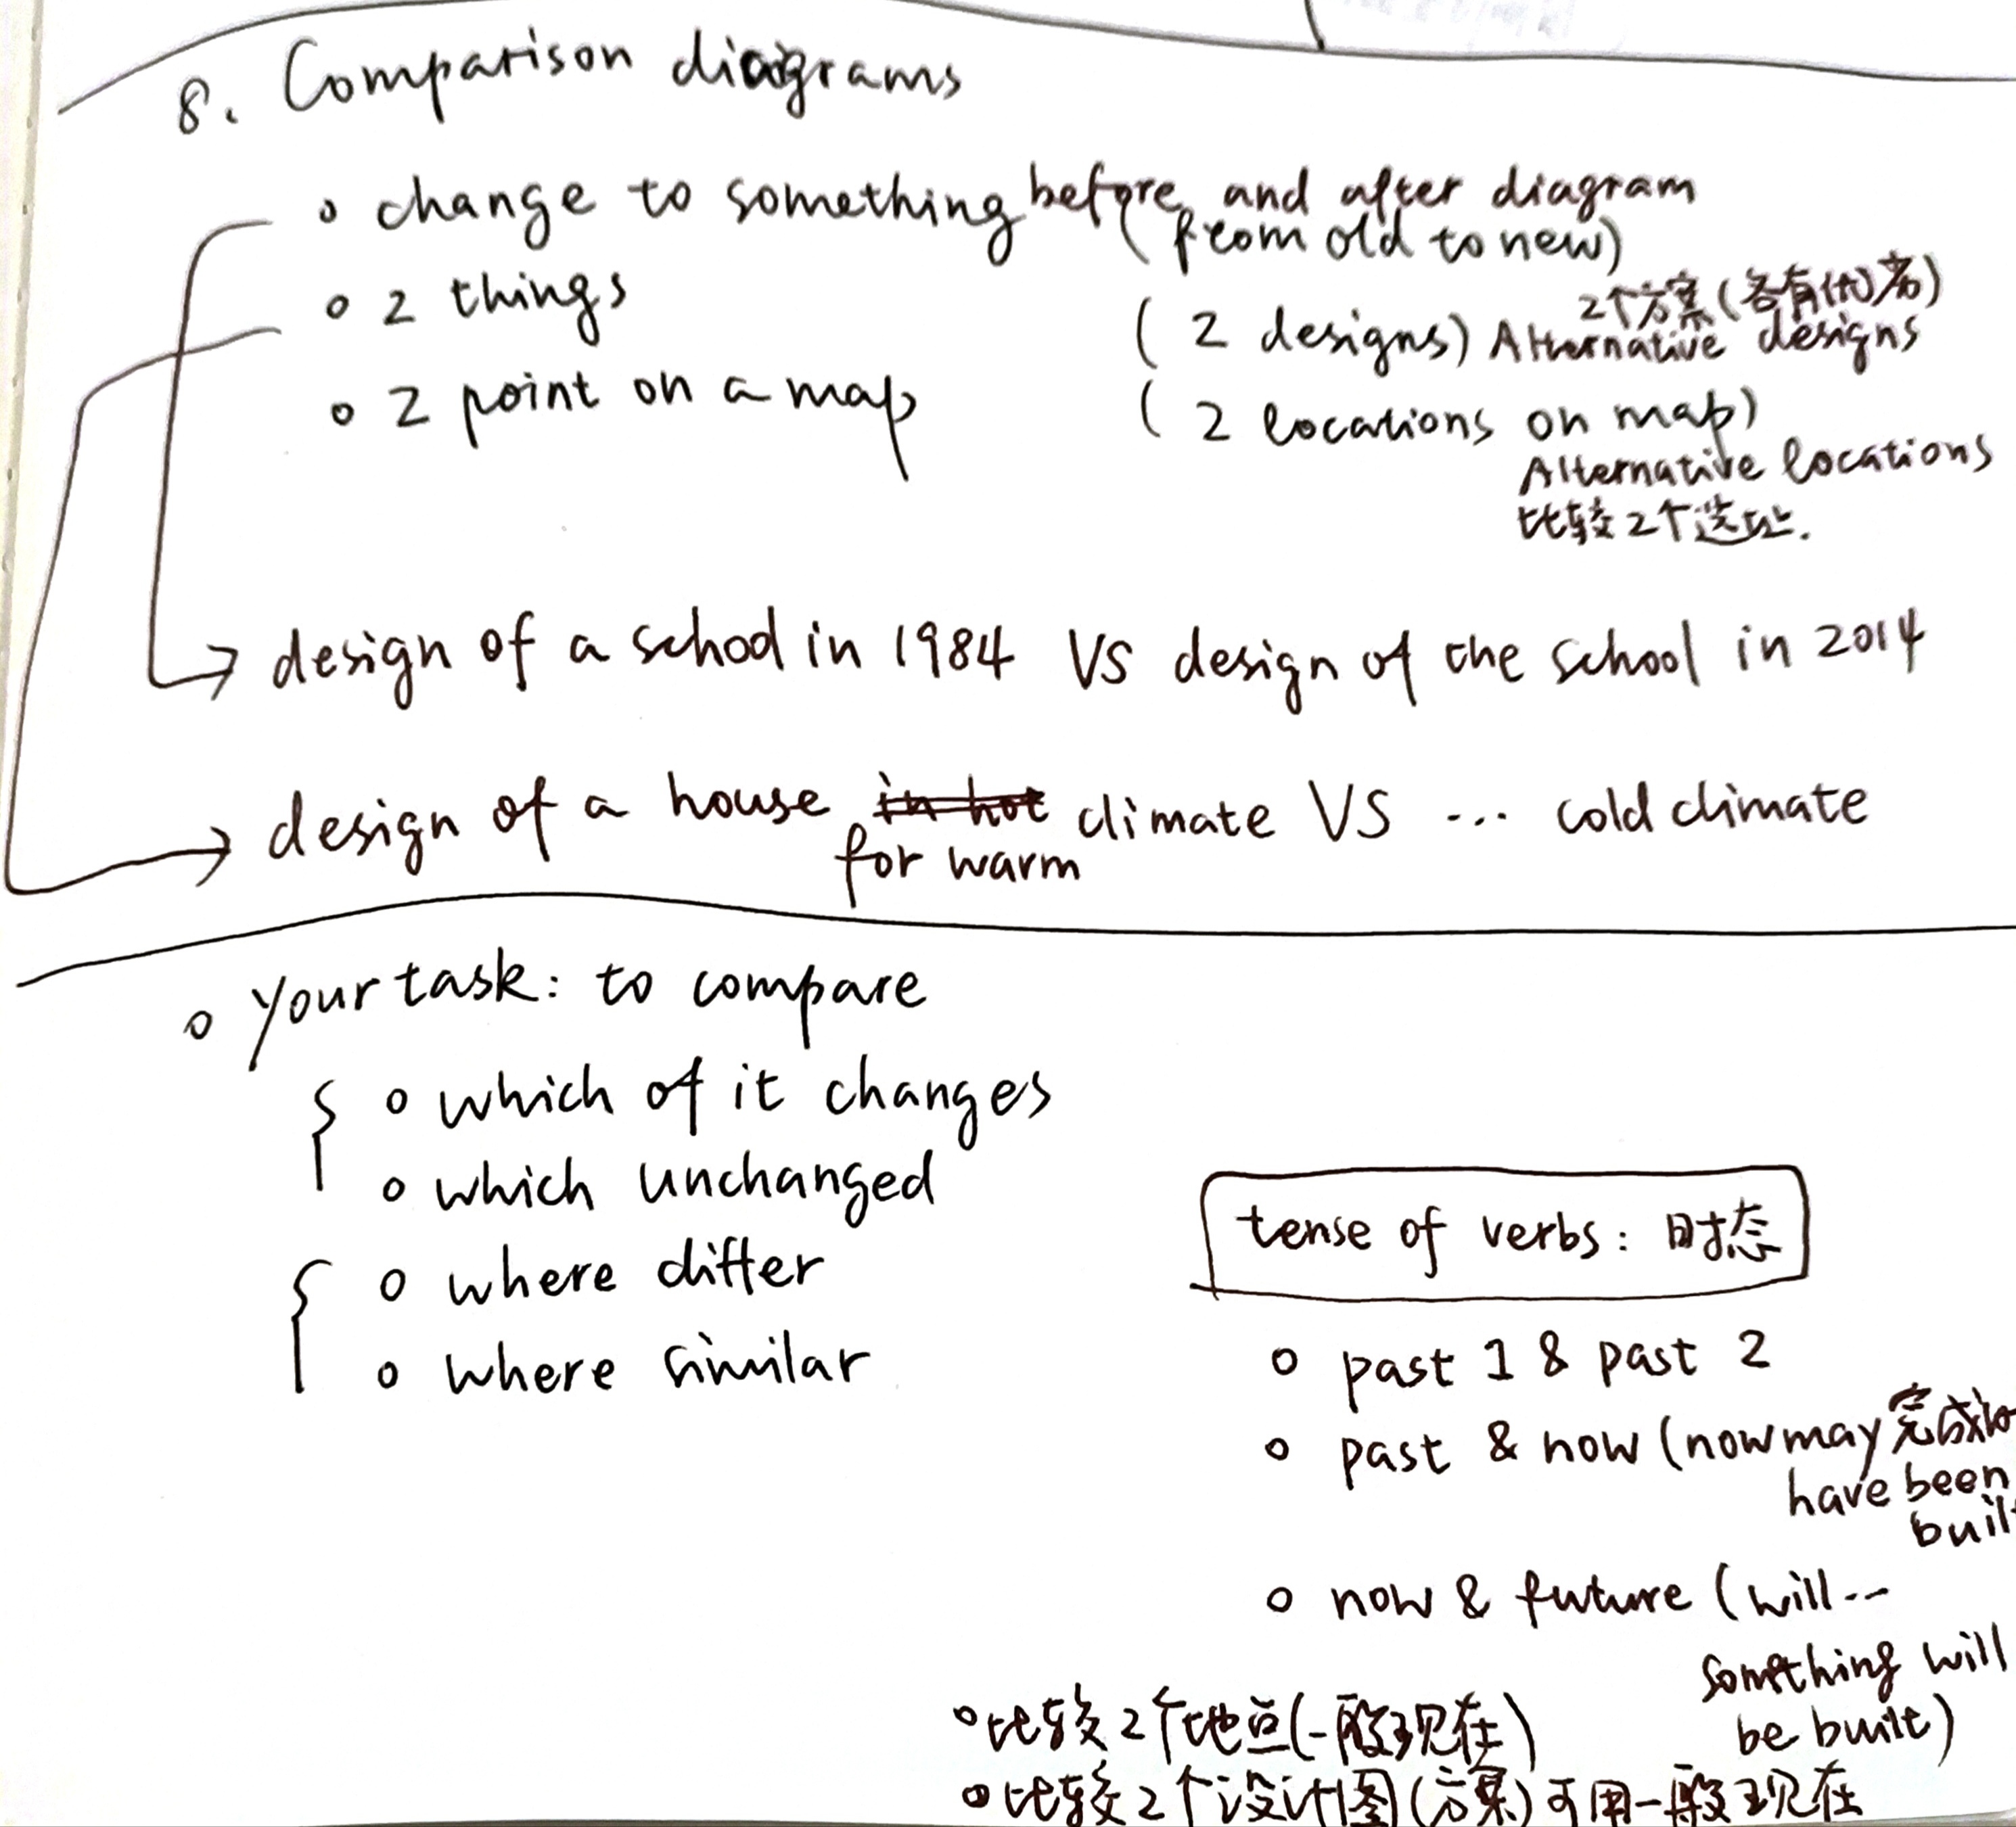 8. Comparison diagrams
o change to something before and after diagram
(from old to new)
o 2 things
2个方案(各有优劣)
(2 designs) Alternative designs
o 2 point on a map
(2 locations on map)
Alternative locations
比较2个选址.
design of a school in 1984 VS design of the school in 2014
design of a house in hot climate VS ... cold climate
for warm
o your task: to compare
o which of it changes
o which unchanged
o where differ
o where similar
tense of verbs: 时态
o past 1 & past 2
o past & now (now may 完成
have been
buil
o now & future (will--
something will
be built)
o比较2个地点(一般现在)
o比较2个设计图(方案)可用一般现在